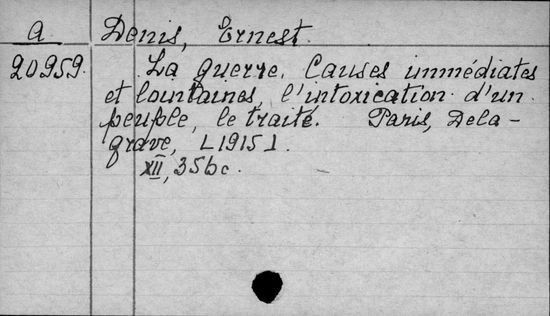 A Denis, Ernest.
20959. La guerre. Causes immédiates
et lountaines, l'intoxication d'un
peuple, le traité. Paris, Dela-
grave, [1915].
XII, 356 c.